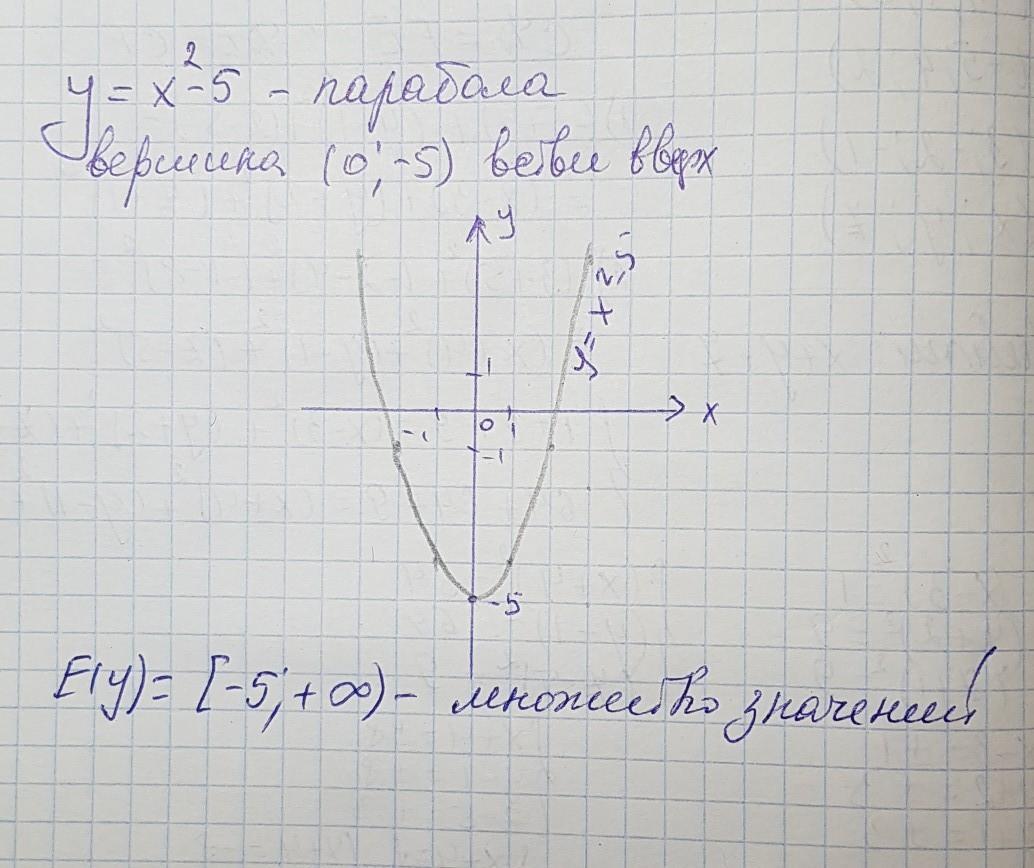 y = x²-5 - парабола
вершина (0; -5) ветви вверх
y
y = x²-5
1
-1 0 1 x
-1
-5
E(y) = [-5; +∞) - множество значений